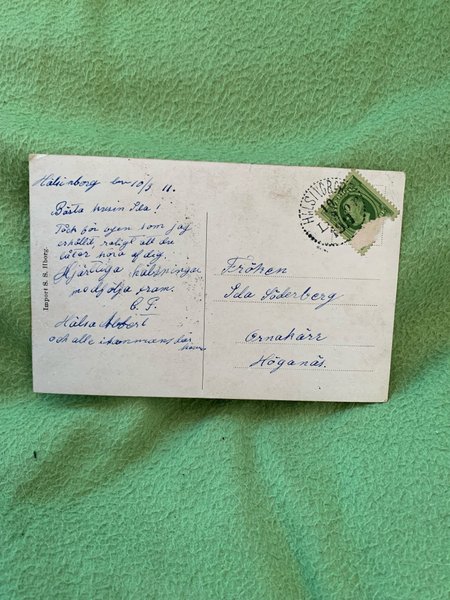 Hälsinborg den 10/3 11.
Bästa kusin Ida!
Tack för ... som jag
erhållit, roligt att du
låter höra af dig.
Hjärtliga hälsningar
medfölja från.
C. P.
Hälsa Albert
och alla
Import S. S. Hborg.
HELSINGBORG
Fröken
Ida Söderberg
Ornakärr
Höganäs.